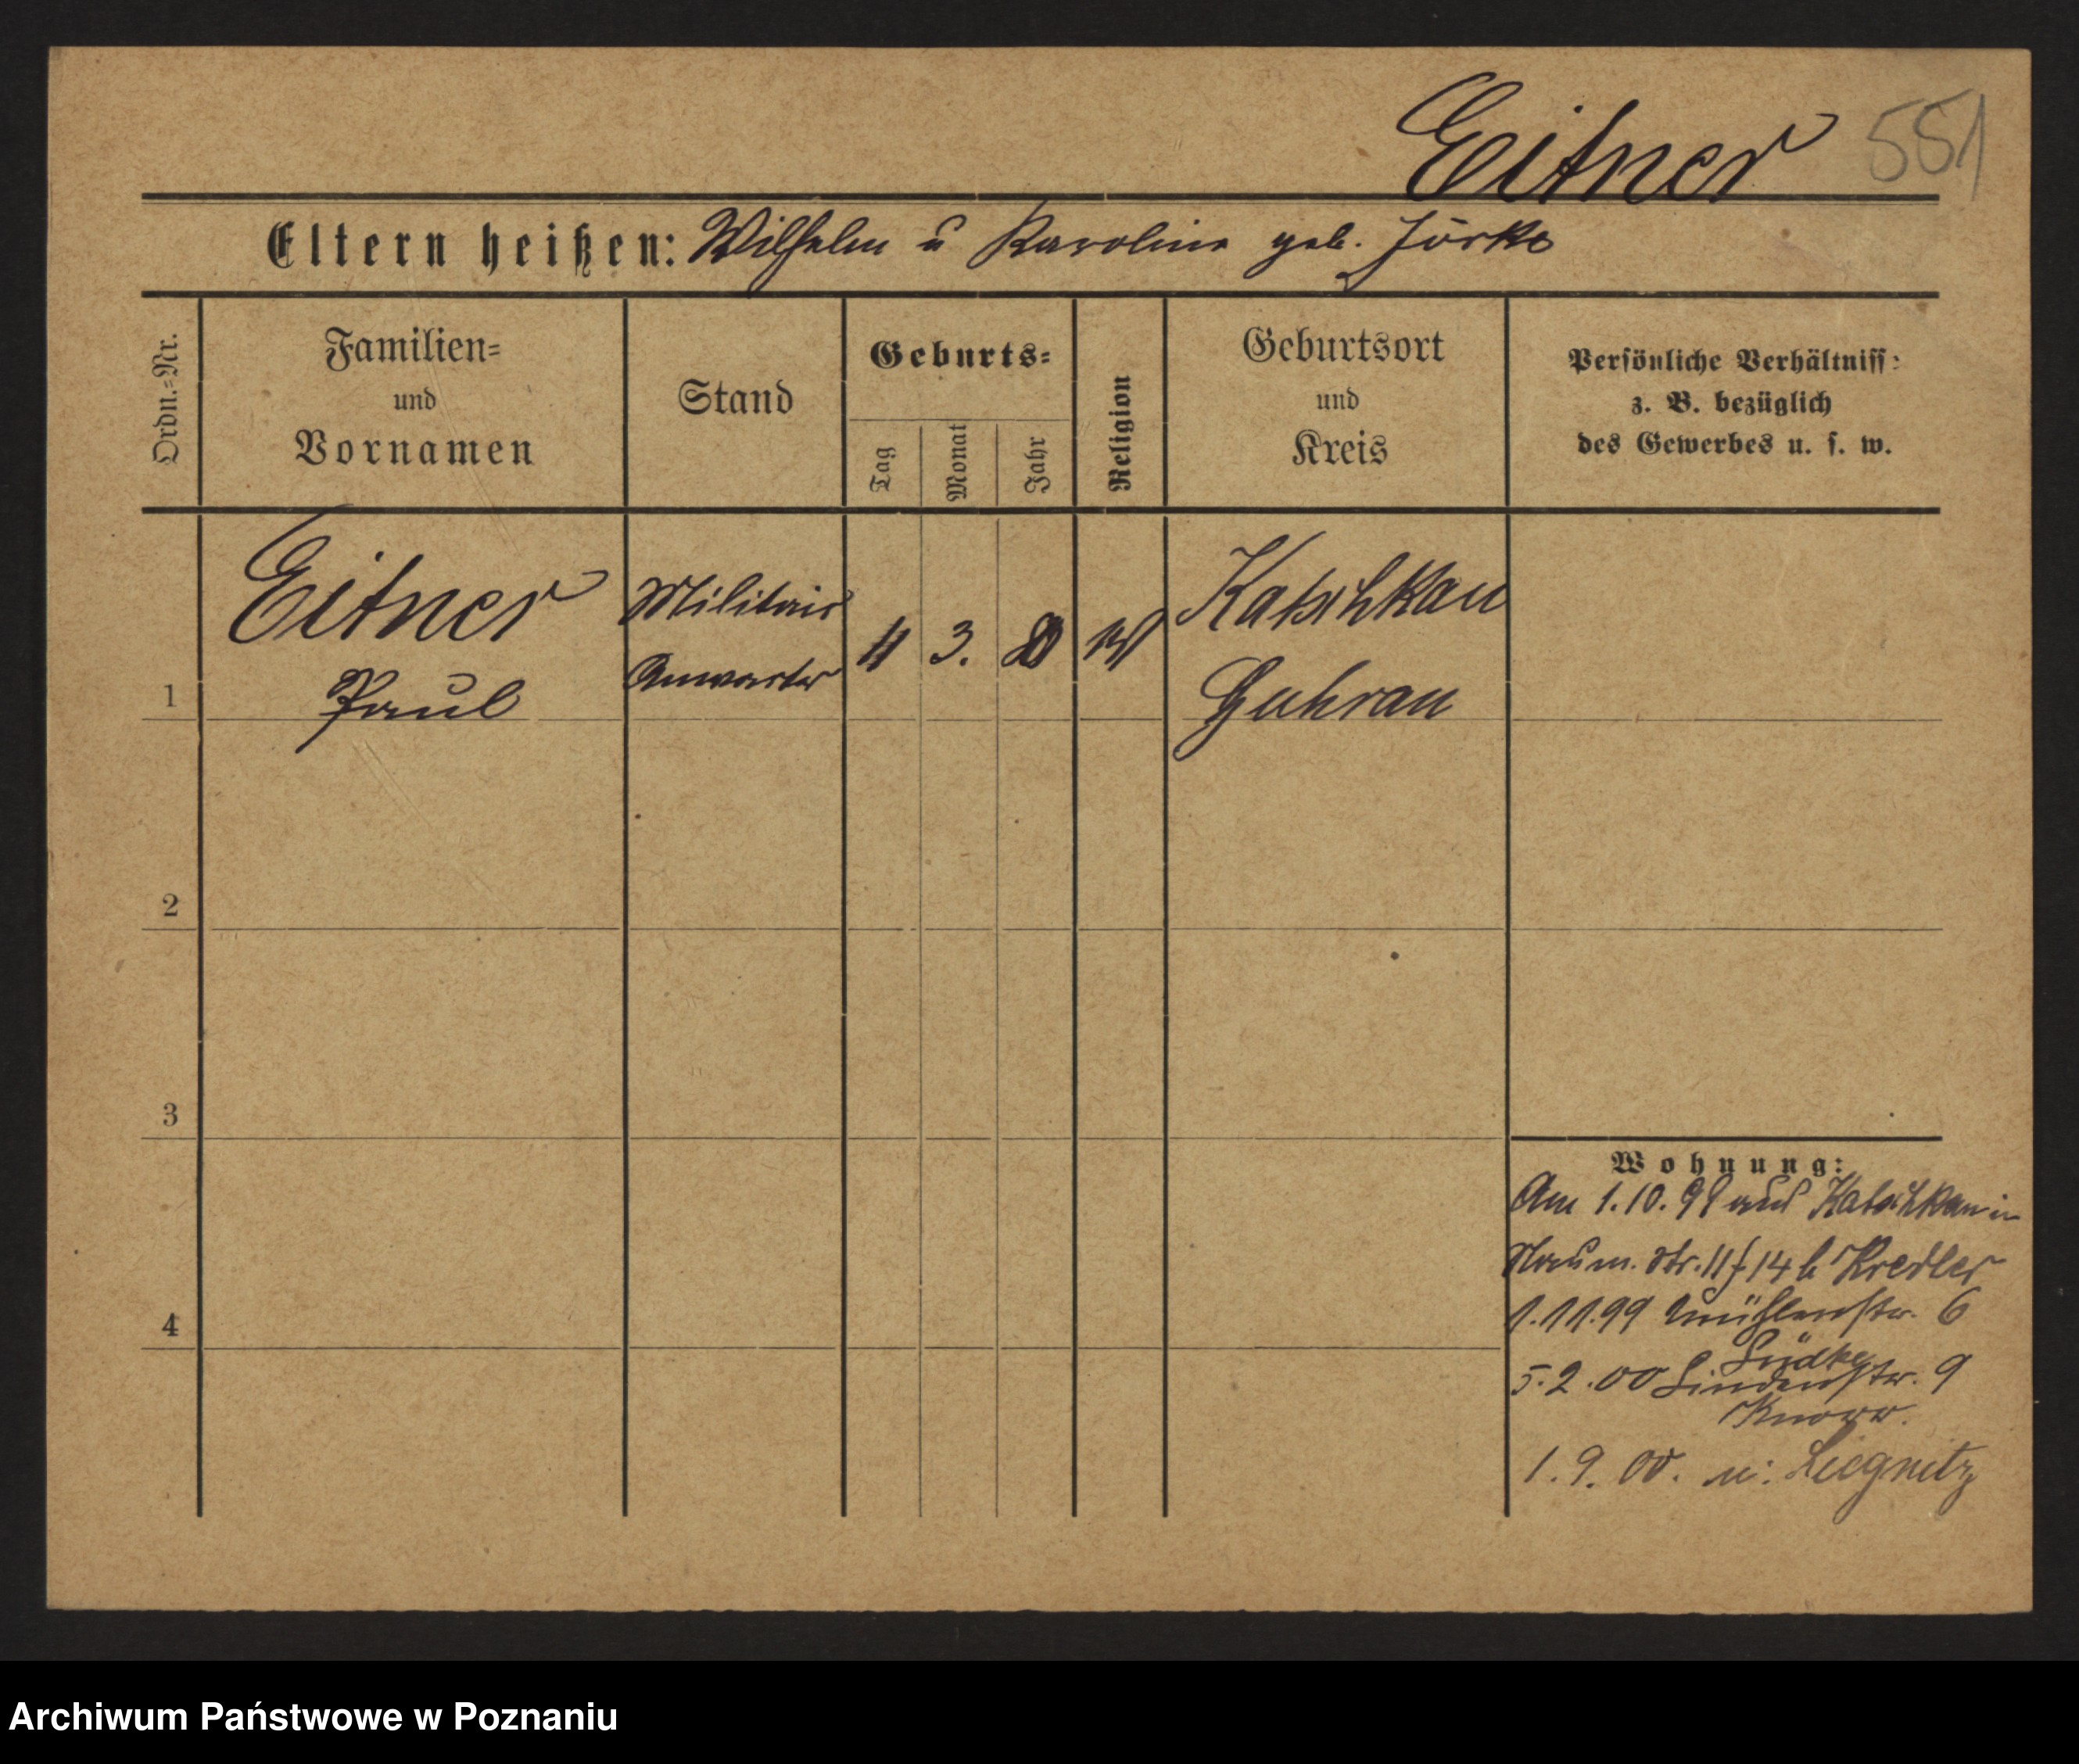 Eitner 551
Eltern heißen: Wilhelm u Karoline geb. Jörke
Ordn.=Nr.
Familien=
und
Vornamen
Stand
Geburts=
Tag
Monat
Jahr
Religion
Geburtsort
und
Kreis
Persönliche Verhältniss:
z. B. bezüglich
des Gewerbes u. s. w.
1
Eitner
Paul
Militair
Anwarter
3.
Katschkau
Guhrau
2
3
4
Wohnung:
Am 1.10.98 aus Katschkau in
Naum. Str. 11/14 b Kredler
1.11.99 Mühlenstr. 6
Lüdke
5.2.00 Lindenstr. 9
Knorr.
1.9.00. n: Liegnitz
Archiwum Państwowe w Poznaniu